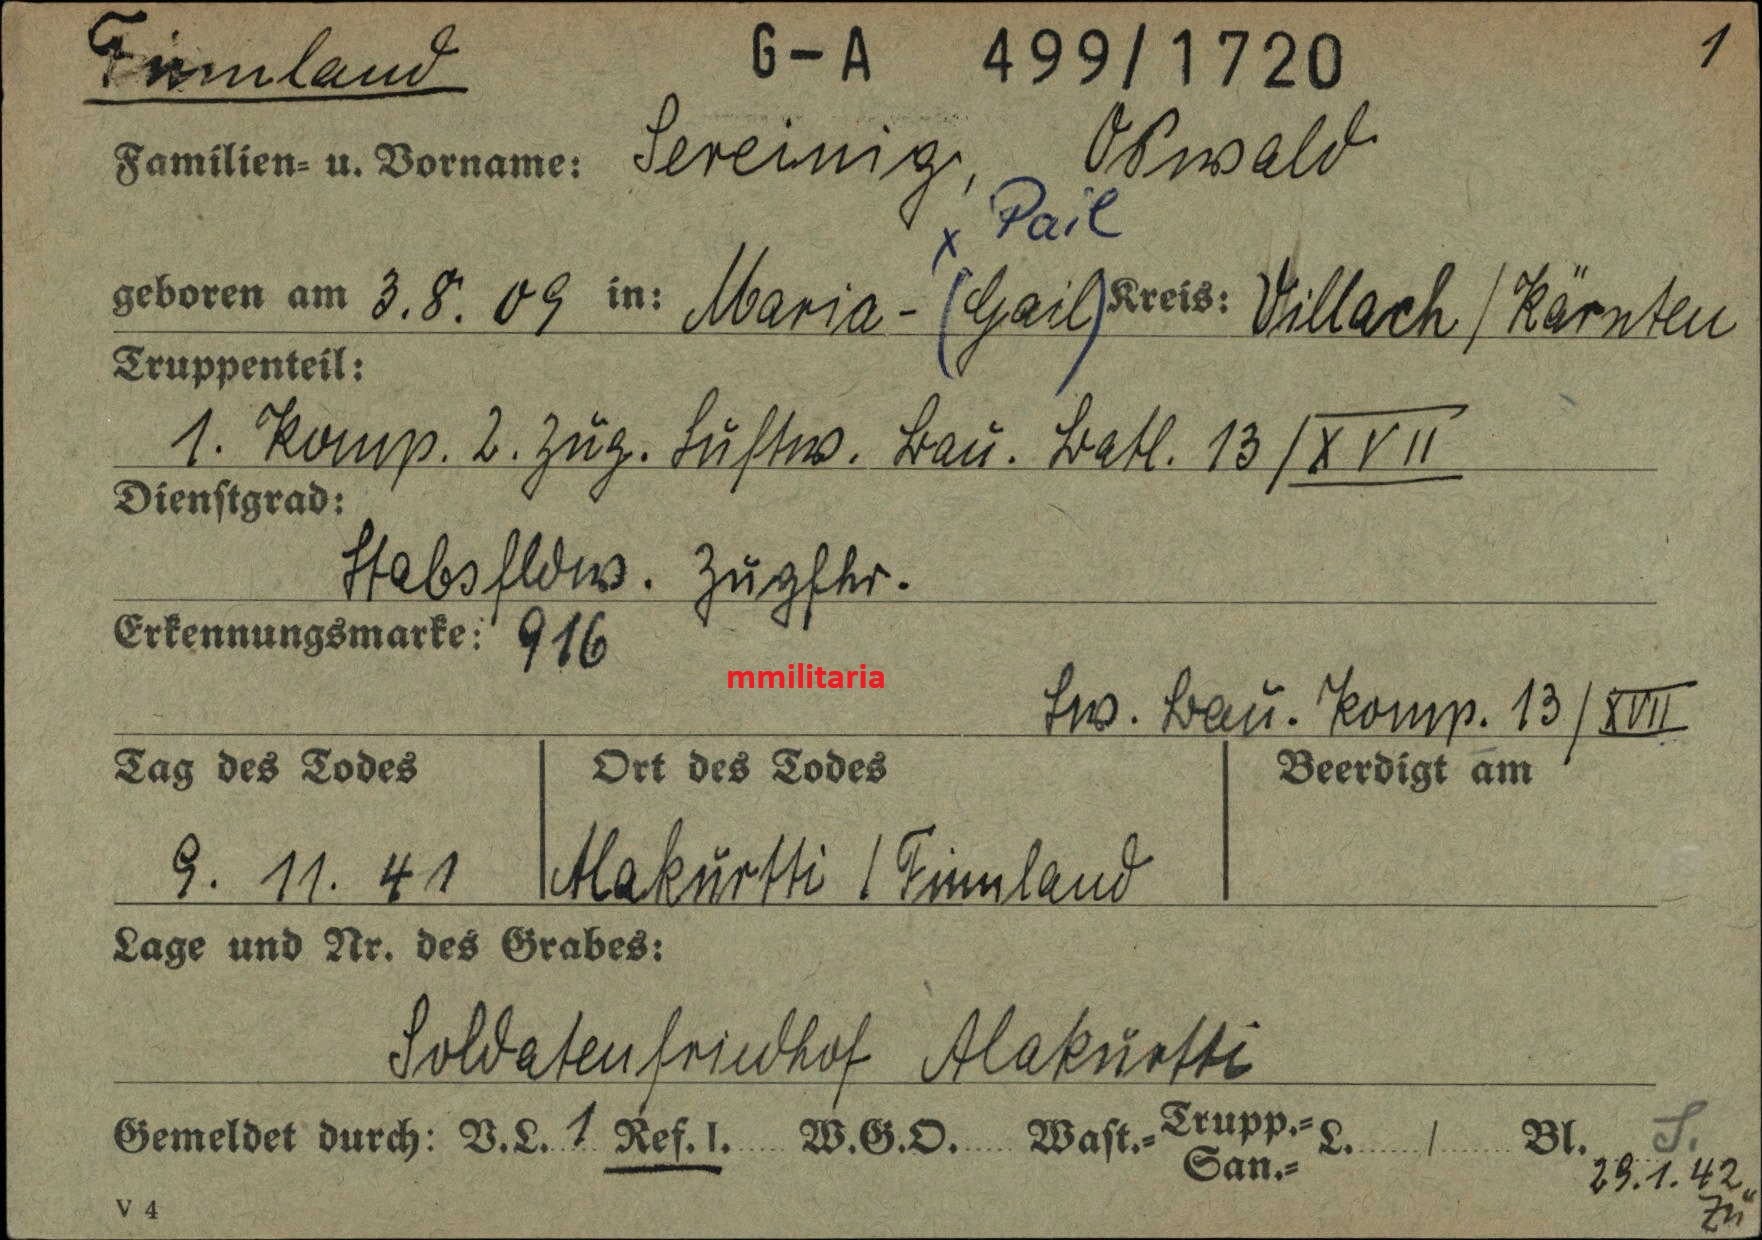 Finnland G-A 499/1720 1
Familien- u. Vorname: Sereinig, Oswald
x Pail
geboren am 3.8.09 in: Maria-(Gail) Kreis: Villach/Kärnten
Truppenteil:
1. Komp. 2. Zug. Luftw. Bau. Batl. 13/XVII
Dienstgrad:
Stabsfldw. Zugfhr.
Erkennungsmarke: 916
mmilitaria
Lw. Bau. Komp. 13/XVII
Tag des Todes Ort des Todes Beerdigt am
9. 11. 41 Alakurtti / Finnland
Lage und Nr. des Grabes:
Soldatenfriedhof Alakurtti
Gemeldet durch: V.L. 1 Ref. I. W.G.O. Wast.- Trupp.- San.- L. / Bl. S.
29.1.42
V 4 Zü